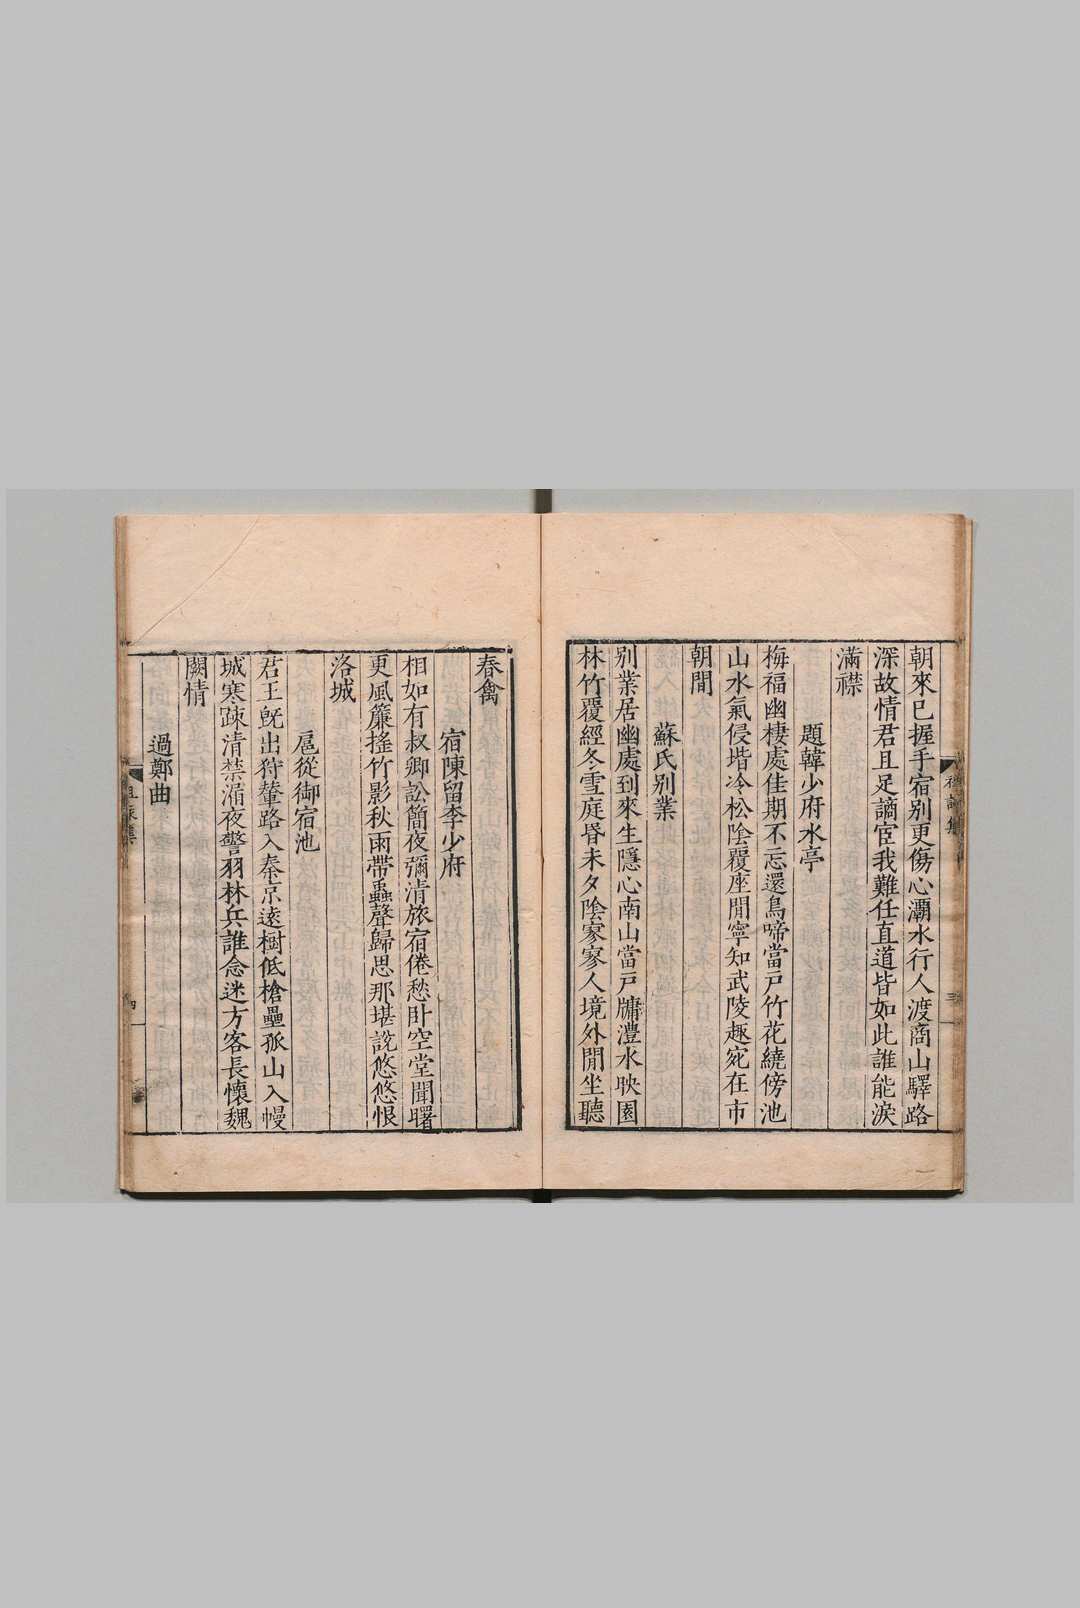 朝來已握手宿别更傷心灞水行人渡商山驛路
深故情君且足謫宦我難任直道皆如此誰能淚
滿襟
題韓少府水亭
梅福幽棲處佳期不忘還鳥啼當戸竹花繞傍池
山水氣侵堦冷松陰覆座閒寧知武陵趣宛在市
朝間
蘇氏别業
别業居幽處到來生隱心南山當戸牖灃水映園
林竹覆經冬雪庭昬未夕陰寥寥人境外閒坐聽
春禽
宿陳留李少府
相如有叔卿訟簡夜彌清旅宿倦愁卧空堂聞曙
更風簾搖竹影秋雨帶蟲聲歸思那堪說悠悠恨
洛城
扈從御宿池
君王旣出狩輦路入秦京遠樹低槍壘孤山入幔
城寒疎清禁漏夜警羽林兵誰念迷方客長懷魏
闕情
過鄭曲
四